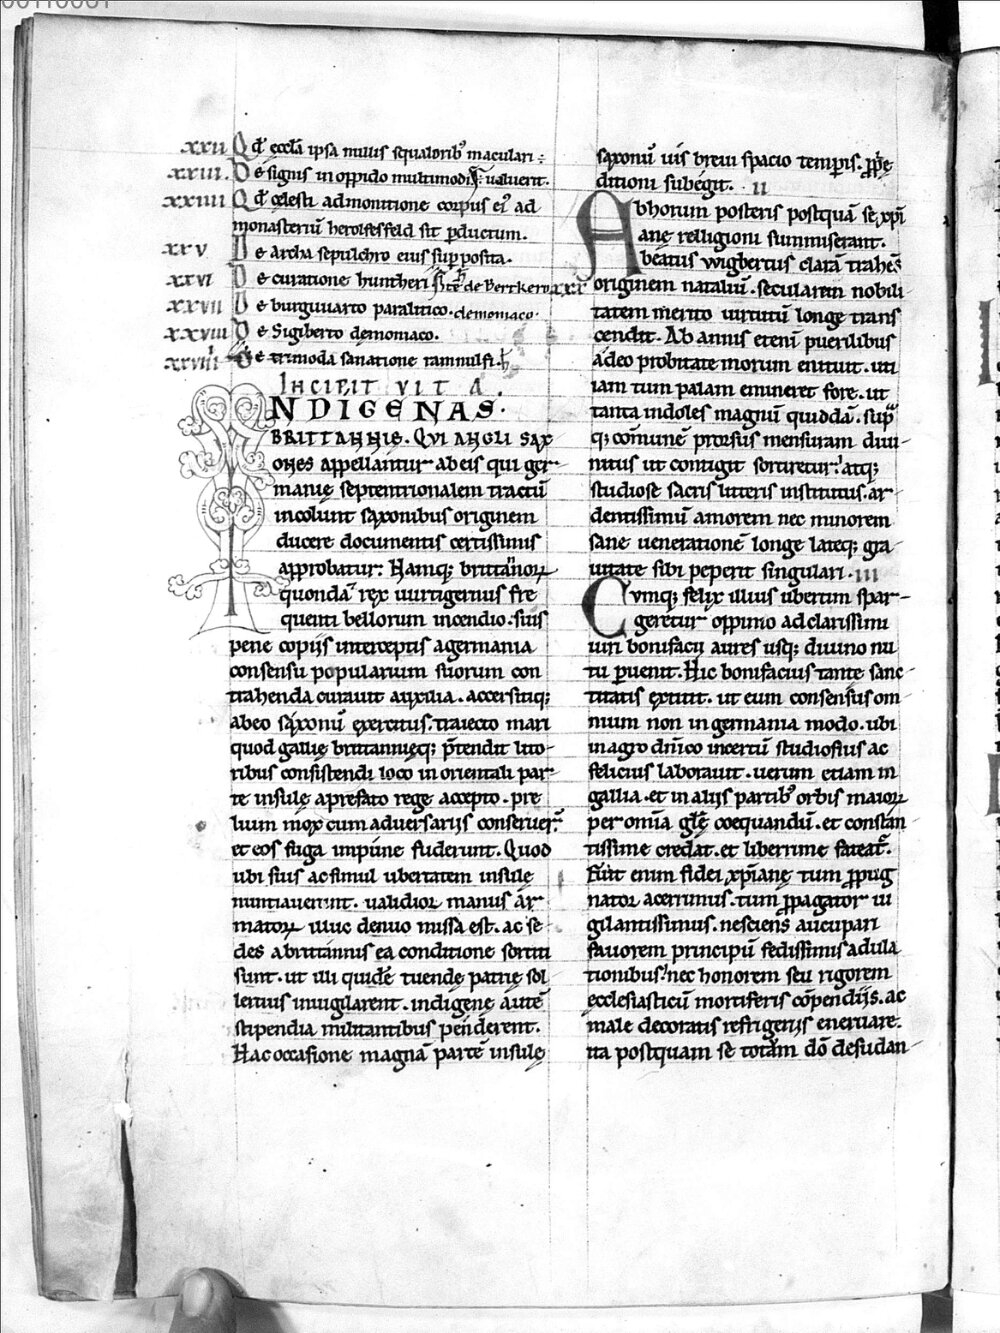 xxii Qđ ecclā ipsa nullis squaloribꝰ maculari
xxiii. De signis in oppido multimodis ualuerit.
xxiiii Qđ celesti admonitione corpus eiꝰ ad
monasteriū herolfesfeld sit ꝑductum.
xxv De archa sepulchro eius suꝑposita.
xxvi De curatione huntheri de Berkero xxx
xxvii De burguuarto paralitico. demoniaco.
xxviii De Sigiberto demoniaco.
xxviiii De trimoda sanatione rammulfi.
INCIPIT VITA.
INDIGENAS
BRITTANNIE. QVI ANGLI SAX
ONES appellantur ab eis qui ger-
manię septentrionalem tractū
incolunt saxonibus originem
ducere documentis certissimis
approbatur: Hamq; brittanoꝝ
quondā rex uurtigernus fre
quenti bellorum incendio. suis
pene copiis interceptis a germania
consensu popularium suorum con
trahenda curauit auxilia. accersitiq;
ab eo saxonū exercitus. traiecto mari
quod gallię brittannięq; p̄tendit lito-
ribus consistendi loco in orientali par-
te insulę a prefato rege accepto. pre
lium mox cum aduersariis conseruer̄
et eos fuga impune fuderunt. Quod
ubi suis ac simul ubertatem insulę
nuntiauerunt. ualidior manus ar-
matoꝝ illuc denuo missa est. ac se
des a brittannis ea conditione sortiti
sunt. ut illi quidē tuendę patrię sol
lertius inuigilarent. indigenę autē
stipendia militantibus penderent.
Hac occasione magnā partē insulę
saxonū uis breui spacio temꝑis. ꝓprię
ditioni subegit. ii
Ab horum posteris postquā se xpi
anę religioni summiserant.
beatus wigbertus clarā trahēs
originem nataliū. secularem nobili
tatem merito uirtutū longe trans
cendit. Ab annis etenī puerilibus
adeo probitate morum enituit. uti
iam tum palam emineret fore. ut
tanta indoles magnū quiddā. supra
q; comunē prorsus mensuram diui-
nitus ut contigit sortiretur: atq;
studiose sacris litteris institutus. ar-
dentissimū amorem nec minorem
sane uenerationē longe lateq; gra
uitate sibi peperit singulari. iii
Cumq; felix illius ubertim spar-
geretur oppinio ad clarissimi
uiri bonifacii aures usq; diuino nu
tu ꝑuenit. Hic bonifacius tante sanc-
titatis extitit. ut eum consensus om
nium non in germania modo. ubi
in agro dn̄ico incertū studiosius ac
felicius laborauit. uerum etiam in
gallia. et in aliis partibꝰ orbis maioꝝ
per omia glę coequandū. et constan
tissime credat. et liberrime fateat᷑.
Fuit enim fidei xp̄ianę tum ꝓpug
nator acerrimus. tum ꝓpagator ui
gilantissimus. nesciens aucupari
fauorem principū fedissimis adula
tionibus. nec honorem seu rigorem
ecclesiasticū mortiferis cōpendiis. ac
male decoratis refrigeriis eneruare.
ita postquam se totum dō desudan-